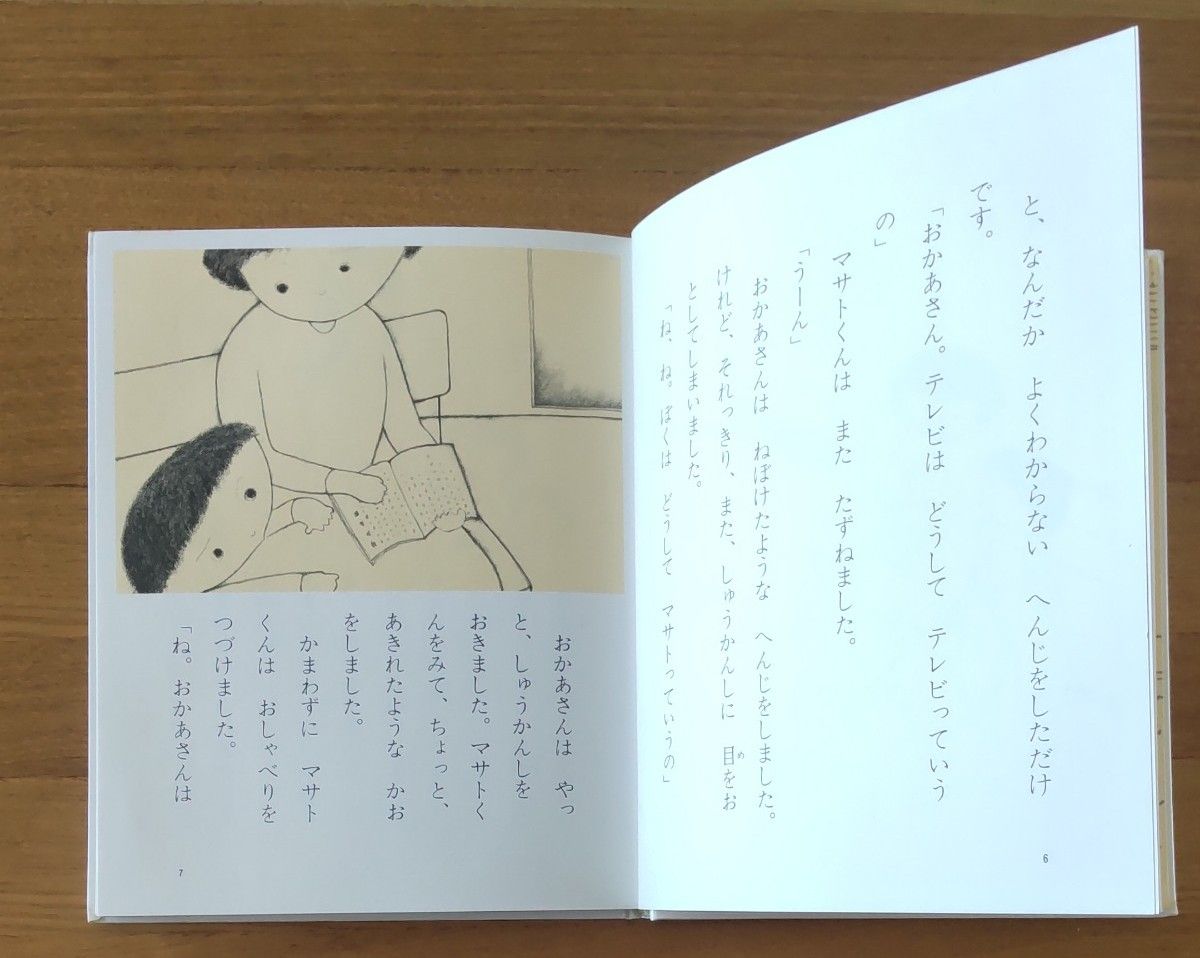 と、なんだか　よくわからない　へんじをしただけ
です。
「おかあさん。テレビは　どうして　テレビっていう
の」
マサトくんは　また　たずねました。
「うーん」
おかあさんは　ねぼけたような　へんじをしました。
けれど、それっきり、また、しゅうかんしに　目をお
め
としてしまいました。
「ね、ね。ぼくは　どうして　マサトっていうの」
6
おかあさんは　やっ
と、しゅうかんしを
おきました。マサトく
んをみて、ちょっと、
あきれたような　かお
をしました。
かまわずに　マサト
くんは　おしゃべりを
つづけました。
「ね。おかあさんは
7